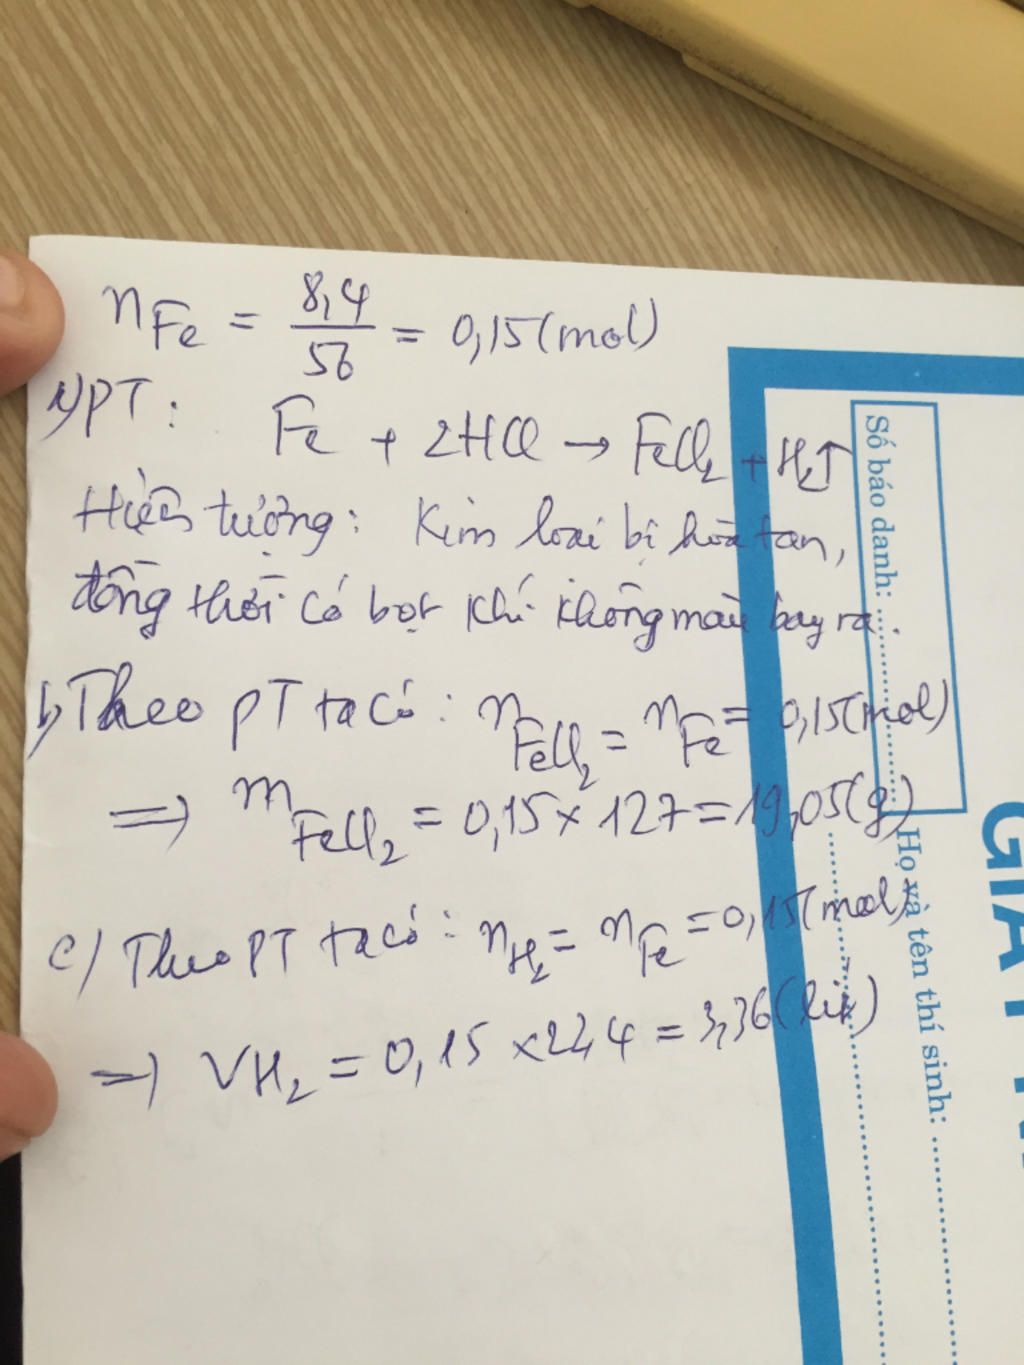 nFe = 8,4/56 = 0,15 (mol)
a) PT: Fe + 2HCl → FeCl2 + H2↑
Hiện tượng: Kim loại bị hòa tan,
đồng thời có bọt khí không màu bay ra.
b) Theo PT ta có: nFeCl2 = nFe = 0,15 (mol)
=> mFeCl2 = 0,15 x 127 = 19,05 (g)
c/ Theo PT ta có: nH2 = nFe = 0,15 (mol)
=> VH2 = 0,15 x 22,4 = 3,36 (lít)
Số báo danh:
Họ và tên thí sinh: